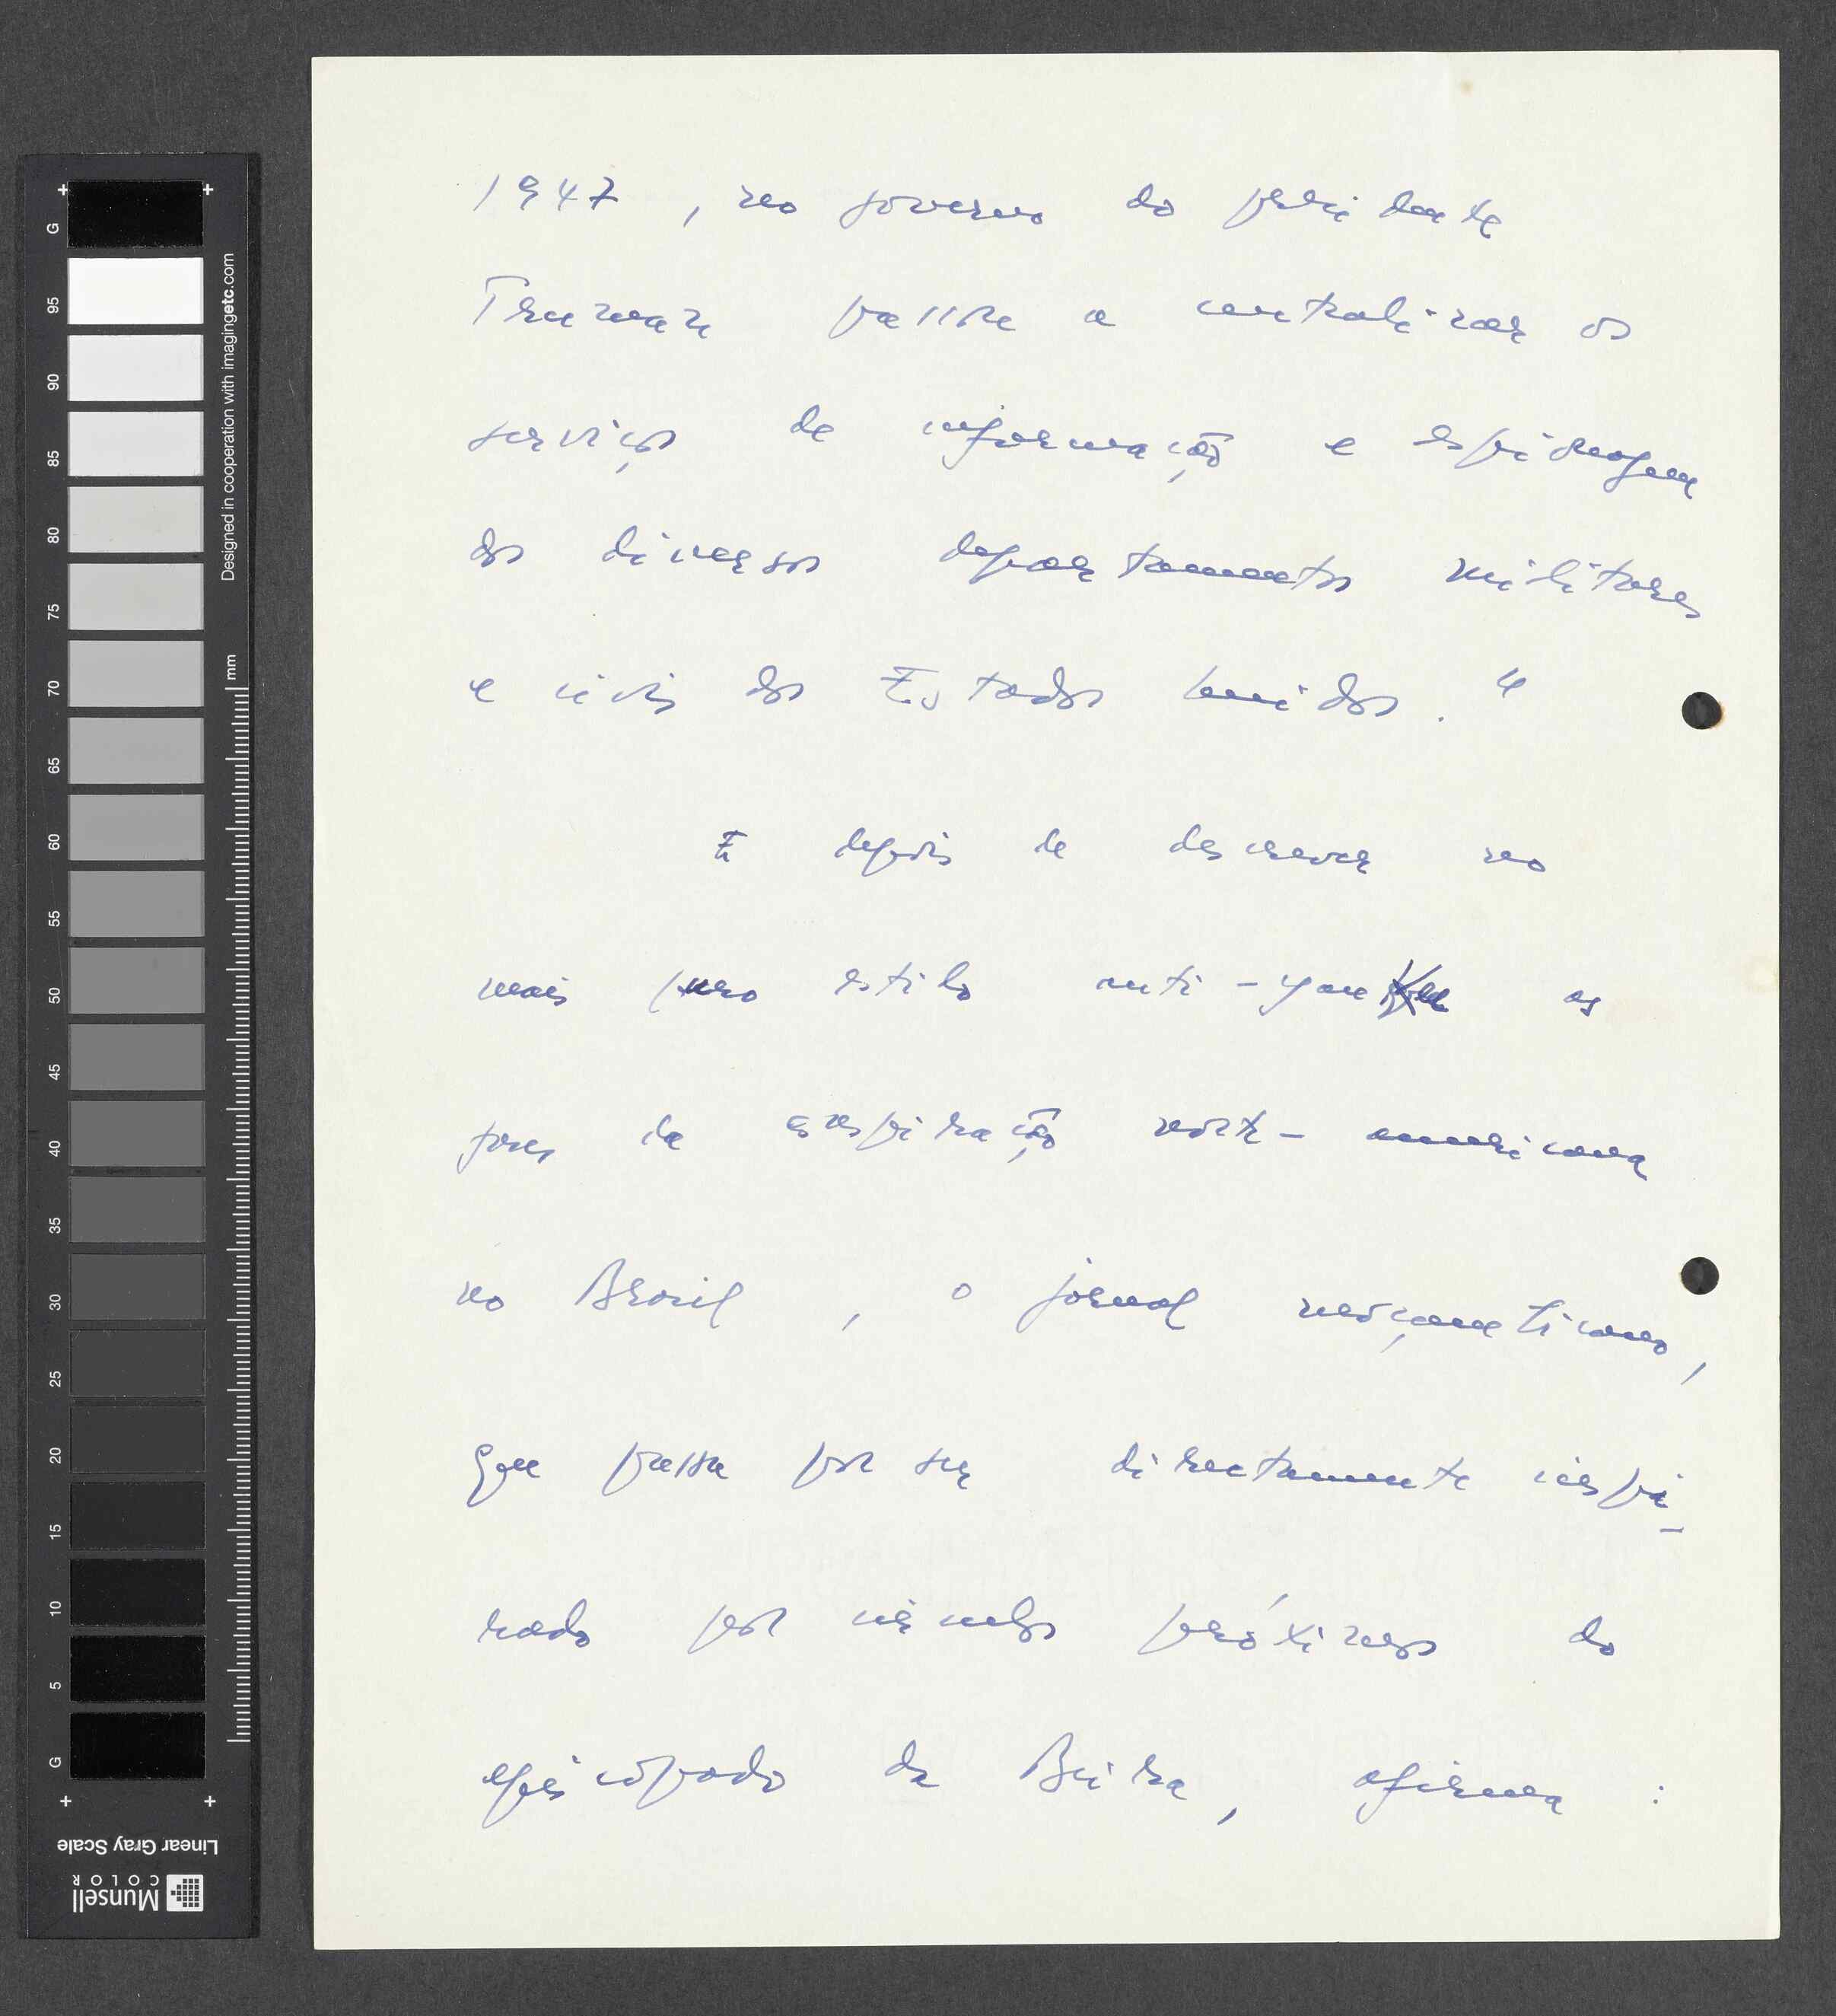 1947, no governo do presidente
Truman passou a centralizar os
serviços de informação e espionagem
dos diversos departamentos militares
e civis dos Estados Unidos."
E depois de descrever no
mais puro estilo anti-yankee as
fases da conspiração norte-americana
no Brasil, o jornal moçambicano,
que passa por ser directamente inspi-
rado por círculos próximos do
episcopado da Beira, afirma:
G
95
90
85
80
75
70
65
60
55
50
45
40
35
30
25
20
15
10
5
G
Designed in cooperation with imagingetc.com
mm
Linear Gray Scale
Munsell
COLOR